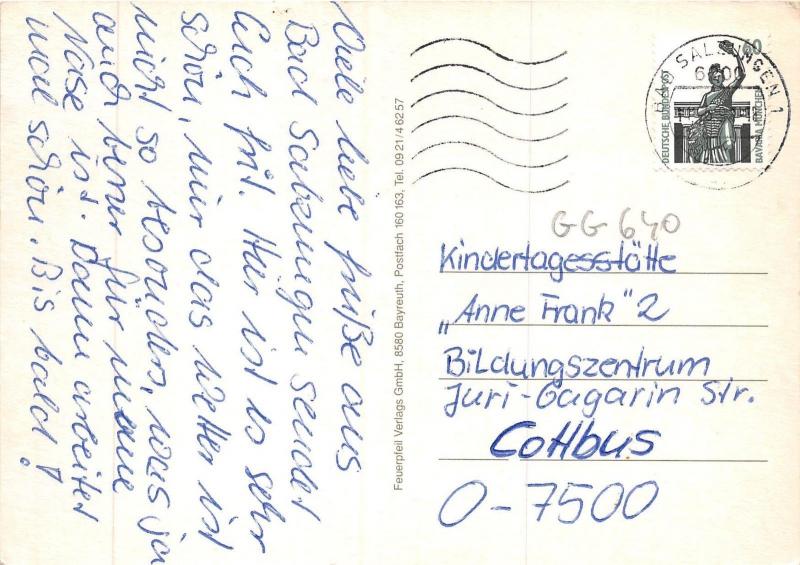 Viele liebe Grüße aus
Bad Salzungen sendet
Euch Hier ist es sehr
schön, nur das Wetter ist
nicht so besonders, was ja
auch besser für meine
Nase ist. Dann arbeitet
mal schön. Bis bald!
Feuerpfeil Verlags GmbH, 8580 Bayreuth, Postfach 160 163, Tel. 09 21/4 62 57
BAD SALZUNGEN 1
60
DEUTSCHE BUNDESPOST
BAVARIA MÜNCHEN
GG 640
Kindertagesstätte
„Anne Frank" 2
Bildungszentrum
Juri-Gagarin Str.
Cottbus
O-7500